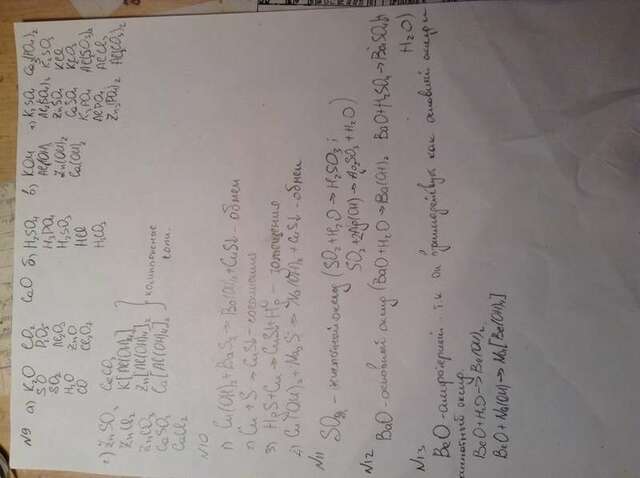 N9 а) K₂O CO₂ CaO б) H₂SO₄ в) KOH г) K₂SO₄ Ca₃(PO₄)₂
SO P₂O₅ H₃PO₄ Al(OH)₃ Al₂(SO₄)₃ K₂SO₃
SO₂ Al₂O₃ H₂SO₃ Zn(OH)₂ ZnSO₄ KCl
H₂O ZnO HCl Ca(OH)₂ CaSO₄ K₂CO₃
CO Cl₂O₇ H₂CO₃ K₃PO₄ Al₂(SO₃)₃
AlPO₄ AlCl₃
Zn₃(PO₄)₂ Al₂(CO₃)₃
г) ZnSO₃ CaCO₃
ZnCl₂ K[Al(OH)₄]
ZnCO₃ Zn[Al(OH)₄]₂ комплексные
CaSO₃ Ca[Al(OH)₄]₂ соли.
CaCl₂
N10
1) Cu(OH)₂ + BaS → Ba(OH)₂ + CuS↓ - обмен
2) Cu + S → CuS↓ - соединения
3) H₂S + Cu → CuS↓ + H₂ - замещения
4) Cu(OH)₂ + Na₂S → Na(OH)₂ + CuS↓ - обмен
N11
SO₂ - кислотный оксид (SO₂ + H₂O → H₂SO₃;
SO₂ + 2Ag(OH) → Ag₂SO₃ + H₂O)
N12
BaO - основный оксид (BaO + H₂O → Ba(OH)₂ BaO + H₂SO₄ → BaSO₄↓
H₂O)
N13
BeO - амфотерный т.к он как основный оксид и
кислотный оксид.
BeO + H₂O → Be(OH)₂
BeO + Na(OH) → Na₂[Be(OH)₄]